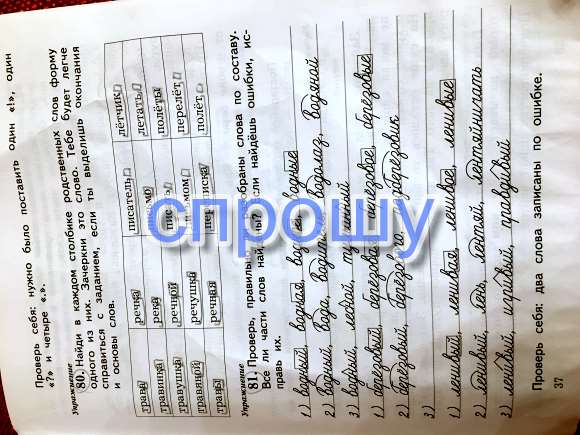 Проверь себя: нужно было поставить один «!», один
«?» и четыре «.».
Упражнение
80. Найди в каждом столбике родственных слов форму
одного из них. Зачеркни это слово. Тебе будет легче
справиться с заданием, если ты выделишь окончания
и основы слов.
трава речка писатель лётчик
травинка река летать
травушка речной полёты
травяной речушка перелёт
травы речная полёт
Упражнение
81. Проверь, правильно разобраны слова по составу.
Все ли части слов найдены? Если найдёшь ошибки, ис-
правь их.
1) водный, водная, водные
2) водный, вода, водолаз, водяной
3) водный, левый,
1) берёзовый, берёзовое, берёзовые
2) берёзовый, подберёзовик
3)
1) ленивый, ленивая, ленивое, ленивые
2) ленивый, лень, лентяй, лентяйничать
3) ленивый, игривый, правдивый
Проверь себя: два слова записаны по ошибке.
37
спрошу